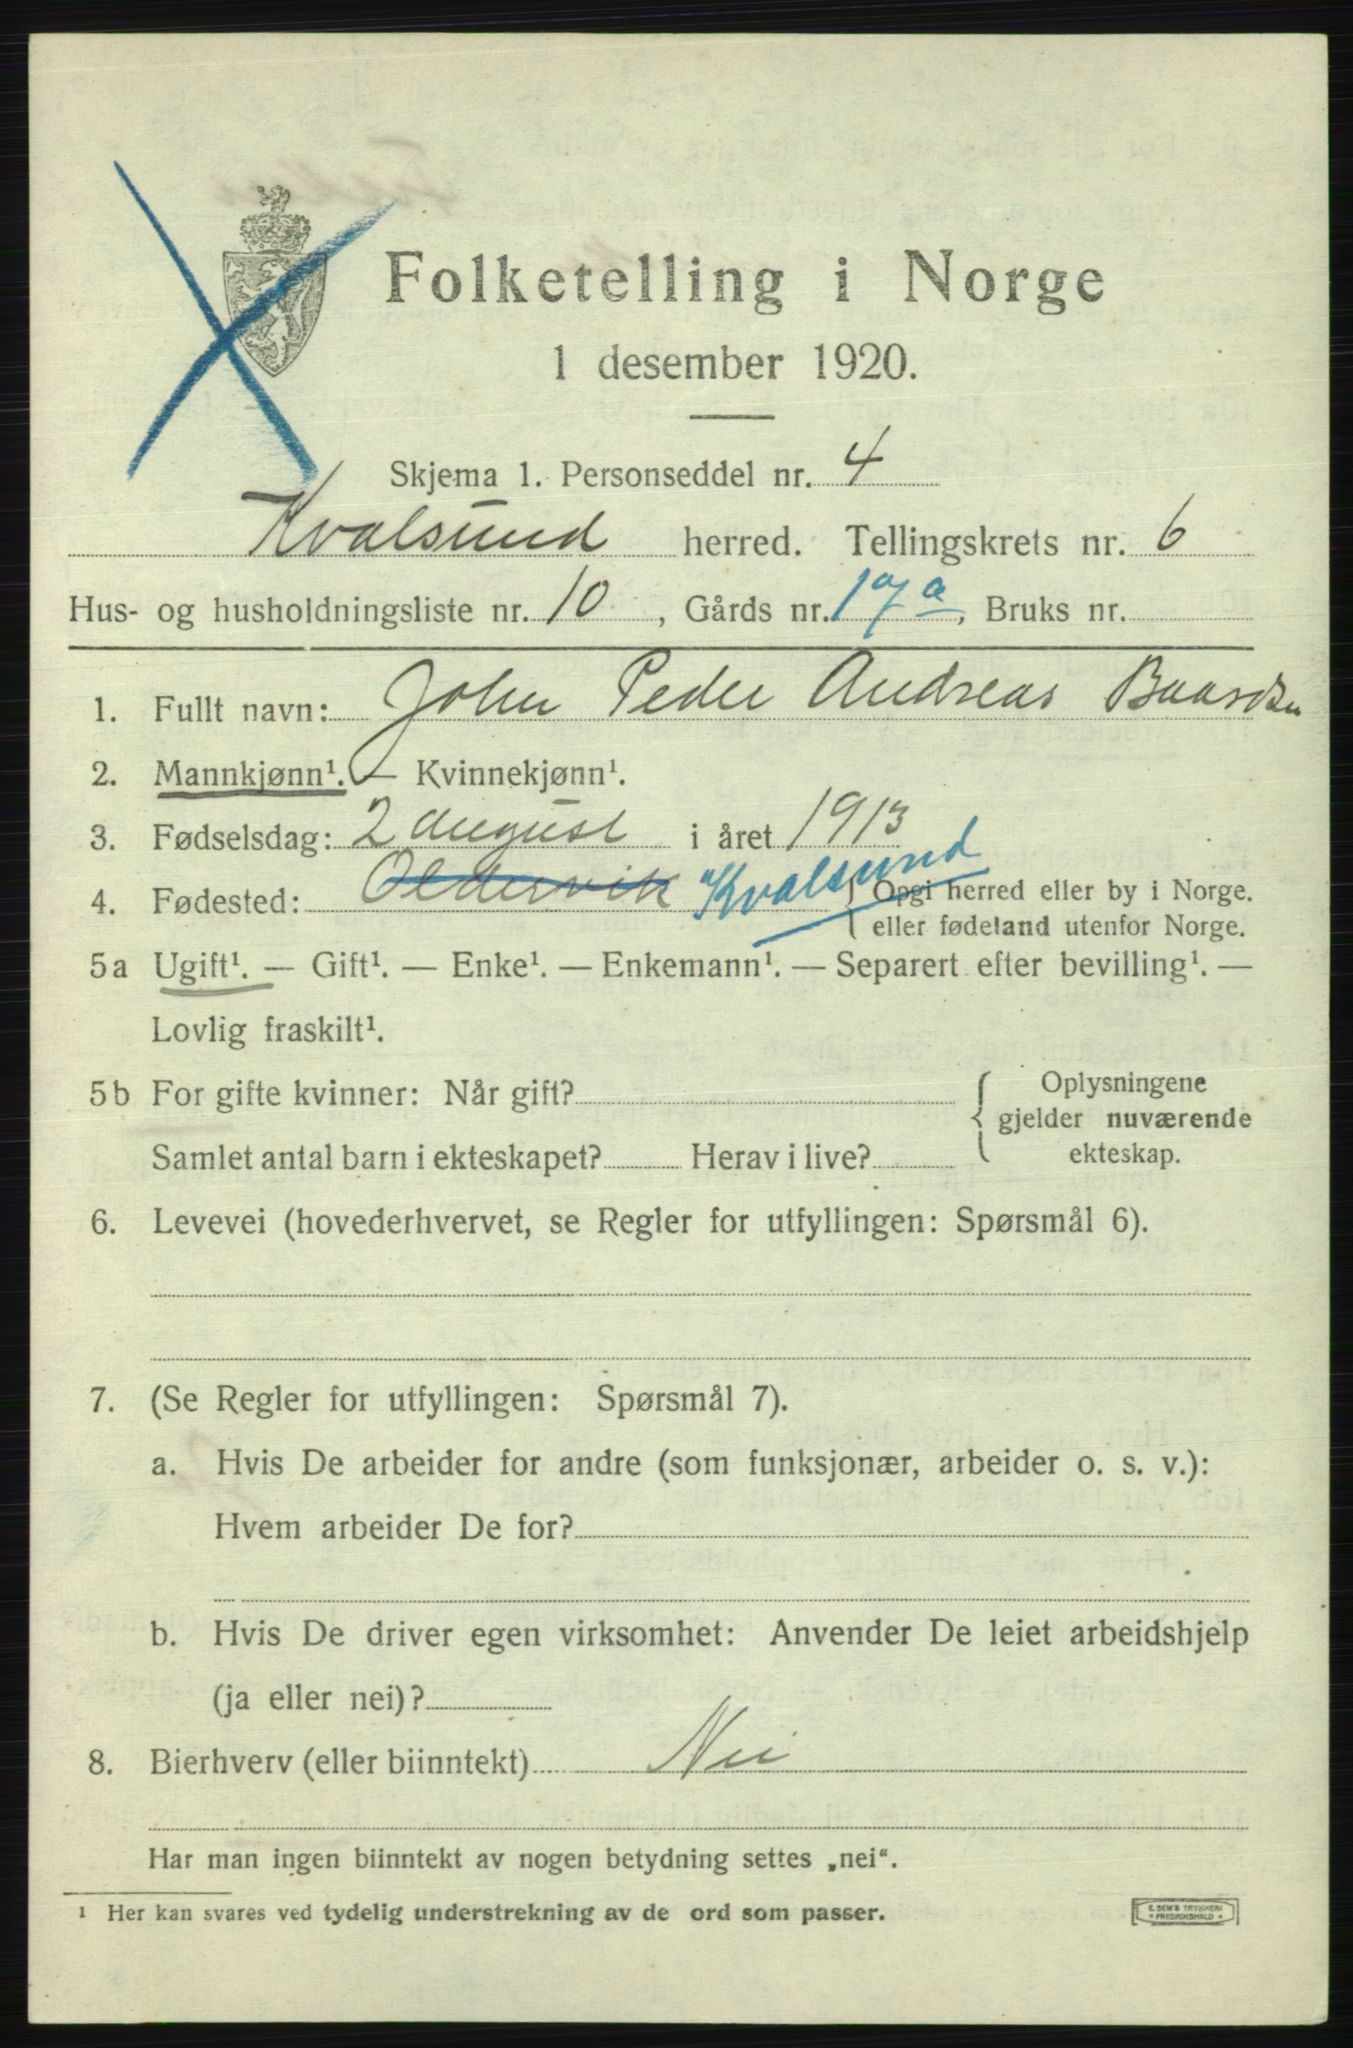 Folketelling i Norge
1 desember 1920.
Skjema 1. Personseddel nr. 4
Kvalsund herred. Tellingskrets nr. 6
Hus- og husholdningsliste nr. 10, Gårds nr. 17a, Bruks nr.
1. Fullt navn: John Peder Andreas Baardsen
2. Mannkjønn¹. — Kvinnekjønn¹.
3. Fødselsdag: 2 august i året 1913
4. Fødested: Oldervik Kvalsund { Opgi herred eller by i Norge.
eller fødeland utenfor Norge.
5a Ugift¹. — Gift¹. — Enke¹. — Enkemann¹. — Separert efter bevilling¹. —
Lovlig fraskilt¹.
5b For gifte kvinner: Når gift? { Oplysningene
gjelder nuværende
Samlet antal barn i ekteskapet? Herav i live? ekteskap.
6. Levevei (hovederhvervet, se Regler for utfyllingen: Spørsmål 6).
7. (Se Regler for utfyllingen: Spørsmål 7).
a. Hvis De arbeider for andre (som funksjonær, arbeider o. s. v.):
Hvem arbeider De for?
b. Hvis De driver egen virksomhet: Anvender De leiet arbeidshjelp
(ja eller nei)?
8. Bierhverv (eller biinntekt) Nei
Har man ingen biinntekt av nogen betydning settes „nei“.
¹ Her kan svares ved tydelig understrekning av de ord som passer.
E. SEM'S TRYKKERI
FREDRIKSHALD